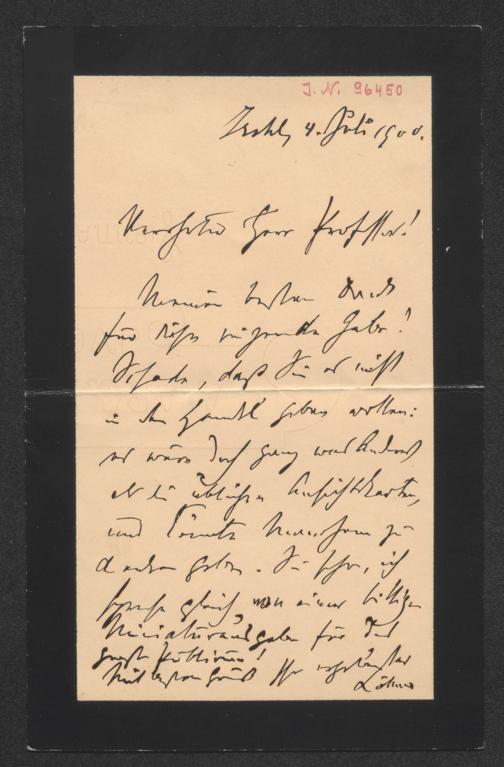 J. N. 96450
Ischl, 4. Juli 1900.
Verehrter Herr Professor!
Meinen besten Dank
für diese reizende Gabe!
Schade, daß Sie es nicht
in den Handel geben wollen:
es wäre doch ganz was Anderes
als die üblichen Ansichtskarten,
und könnte Manchem zu
denken geben. Sie sehen, ich
spreche gleich von einer billigen
Miniaturausgabe für das
große Publicum!
Mit bestem Gruß Ihr ergebenster